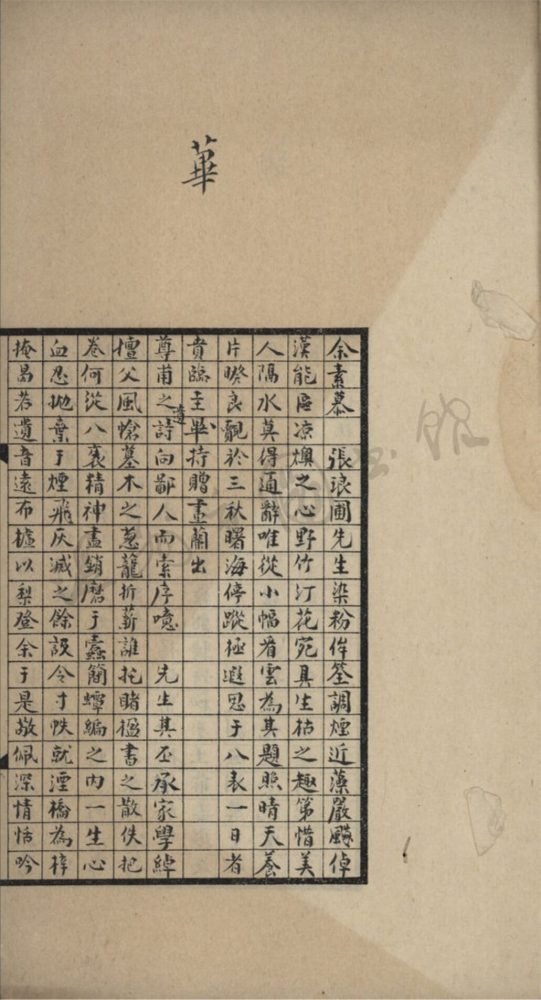 華
余素慕　張琅圃先生染粉侔筌調煙近藻嚴飈倬
漢能區凉燠之心野竹汀花宛具生枯之趣第惜美
人隔水莫得通辭唯從小幅看雲為其題照晴天養
片暌良覿於三秋曙海停蹤極遐思于八表一日者
貴臨主畢持贈畫蘭出
尊甫之遺詩向鄙人而索序噫　先生其丕承家學綽
擅父風愴墓木之葱蘢折薪誰托睹楹書之散佚把
卷何從八袠精神盡銷磨于蠹簡蟫編之內一生心
血忍抛棄于煙飛灰滅之餘設令寸帙就湮橋為梓
掩曷若遺音遠布櫨以梨登余于是敬佩深情恬吟